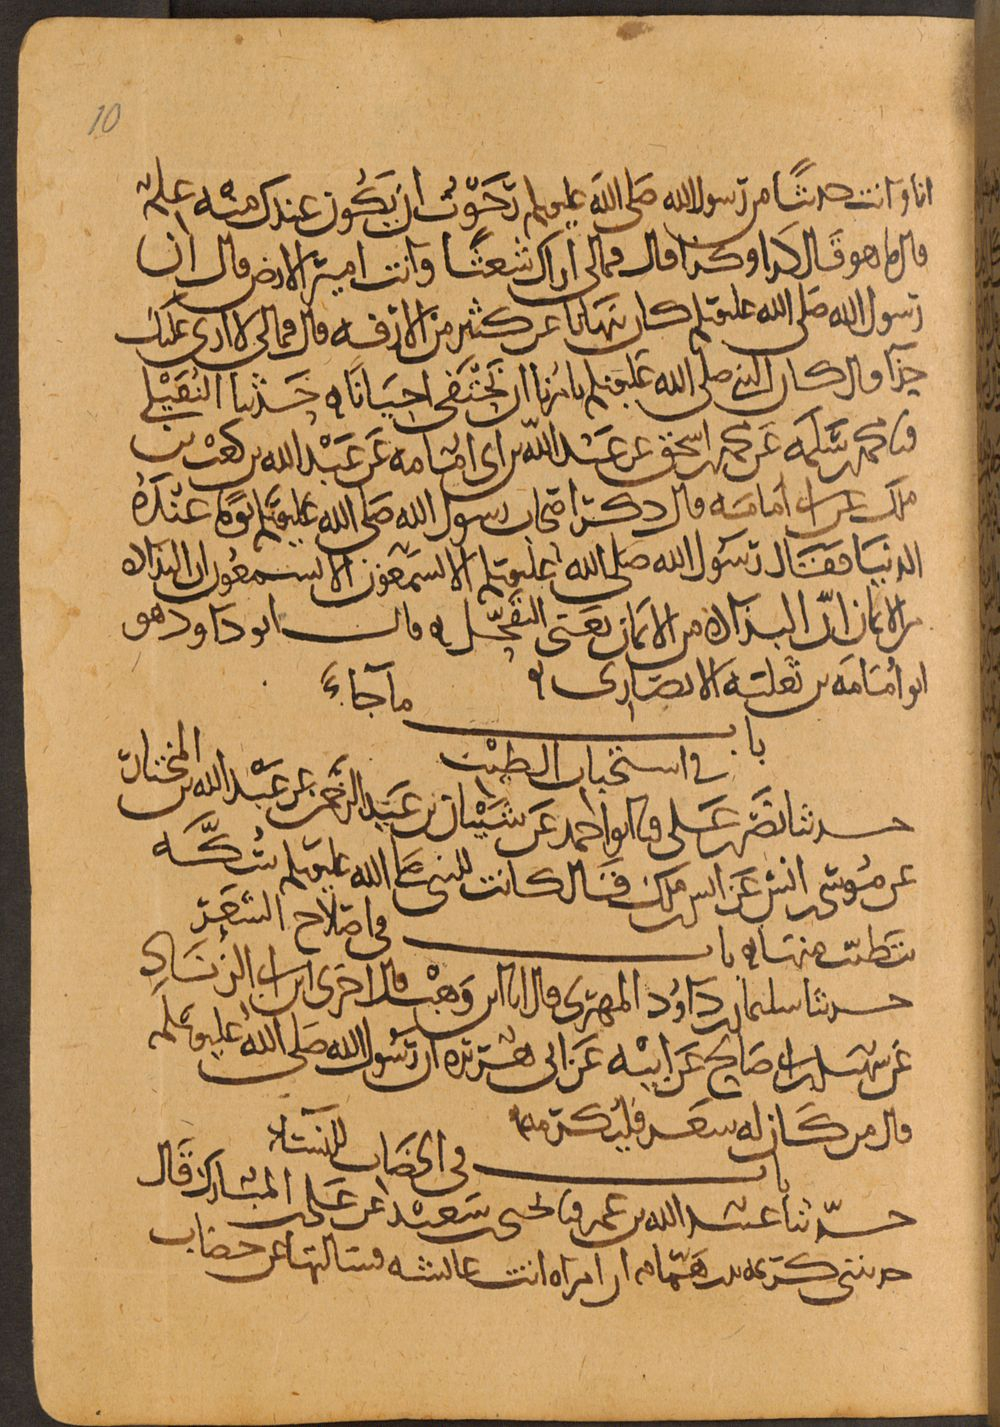 10
انا وانت حديثا من رسول الله صلى الله عليه وسلم رجوت ان يكون عندك منه علم
قال ما هو قال كذا وكذا قال فمالي اراك شعثا وانت امير الارض قال ان
رسول الله صلى الله عليه وسلم كان ينهانا عن كثير من الارفه قال فمالي لا ارى عليك
حذآ قال كان النبي صلى الله عليه وسلم يامرنا ان نحتفي احيانا حدثنا النفيلي
نا محمد بن سلمه عن محمد بن اسحق عن عبد الله بن ابي امامه عن عبد الله بن كعب بن
ملك عن ابي امامه قال ذكر اصحاب رسول الله صلى الله عليه وسلم يوما عنده
الدنيا فقال رسول الله صلى الله عليه وسلم الا تسمعون الا تسمعون ان البذاذه
من الايمان ان البذاذه من الايمان يعني التقحل قال ابو داود هو
ابو امامه بن ثعلبه الانصاري
باب ما جاء
في استحباب الطيب
حدثنا نصر بن علي نا ابو احمد عن شيبان بن عبد الرحمن عن عبد الله بن المختار
عن موسى بن انس عن انس بن ملك قال كانت للنبي صلى الله عليه وسلم سكه
يتطيب منها باب في اصلاح الشعر
حدثنا سليمان بن داود المهري قال انا ابن وهب قال اخبرني ابن ابي الزناد
عن سهيل بن ابي صالح عن ابيه عن ابي هريره ان رسول الله صلى الله عليه وسلم
قال من كان له شعر فليكرمه
باب في الخضاب للنساء
حدثنا عبيد الله بن عمر نا يحيى بن سعيد عن علي بن المبارك قال
حدثتني كريمه بنت همام ان امراه اتت عائشه فسالتها عن خضاب